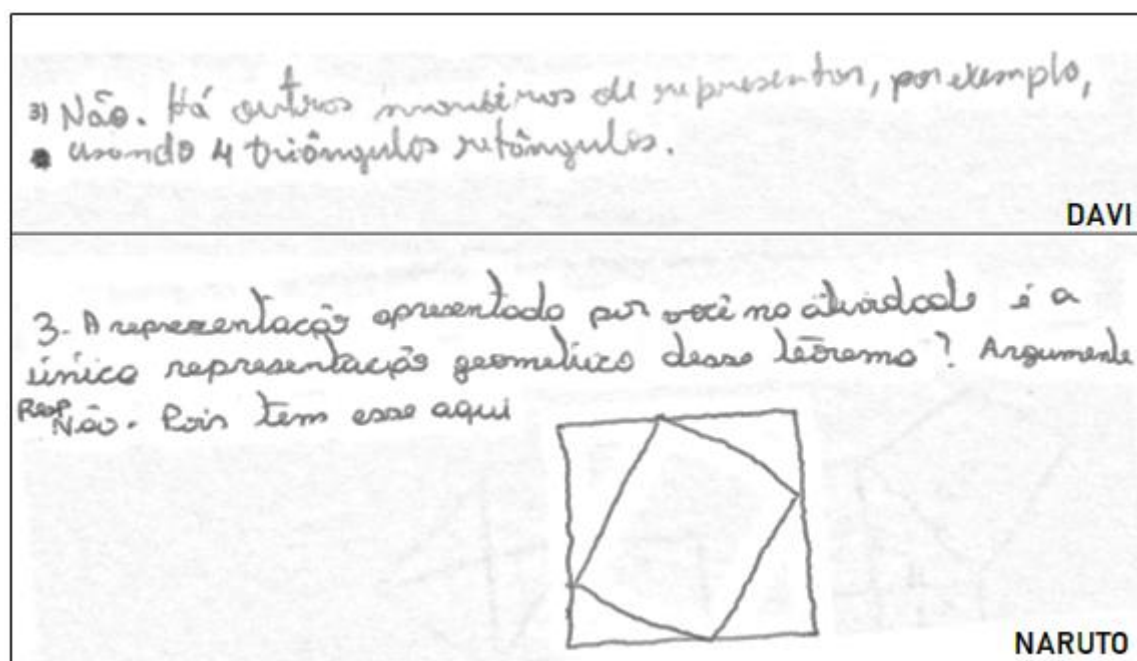 3) Não. Há outras maneiras de representar, por exemplo,
usando 4 triângulos retângulos.
DAVI
3- A reprezentação apresentada por você na atividade é a
única representação geométrica desse teorema? Argumente
Resp Não. Pois tem esse aqui
NARUTO